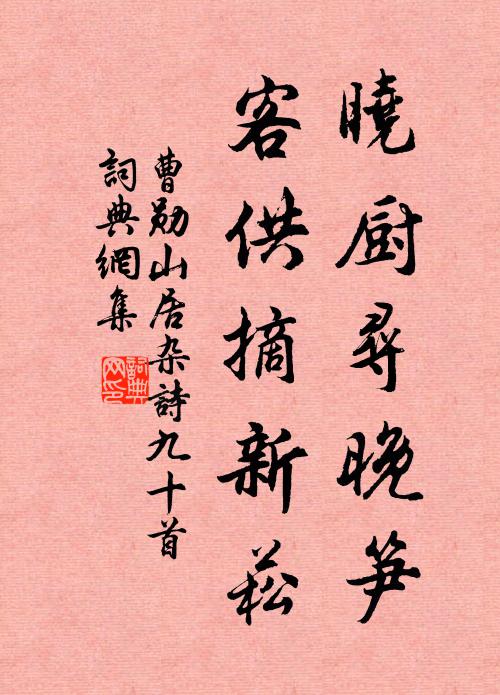 曉厨尋晚笋
客供摘新菘
曹勛山居杂詩九十首
詞典網集
詞典網印